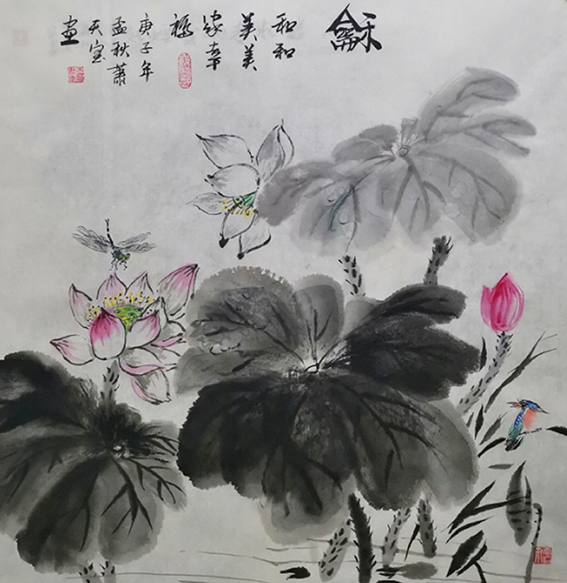 龢
和和
美美
家幸
福
庚子年
孟秋萧
天宝
画